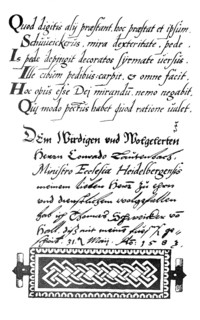 Quod digitis alij præstant, hoc præstat et ipsum
Schuueickerus, mira dexteritate, pede.
Is pede depingit decoratos syrmate uersus.
Ille cibum pedibus carpit, et omne facit.
Hoc opus esse Dei mirandū, nemo negabit,
Qui modo pectus habet quod ratione ualet.
Dem Wirdigen vnd Wolgelerten
Herrn Conrado Lautenbach
Ministro Ecclesiæ Heidelbergensis
meinem lieben Herrn zu ehren
vnd dienstlichem wolgefallen
hab ich Thomas Schweicker vō
Hall, diß mit meinen
31. Maij. Ao. 1583.